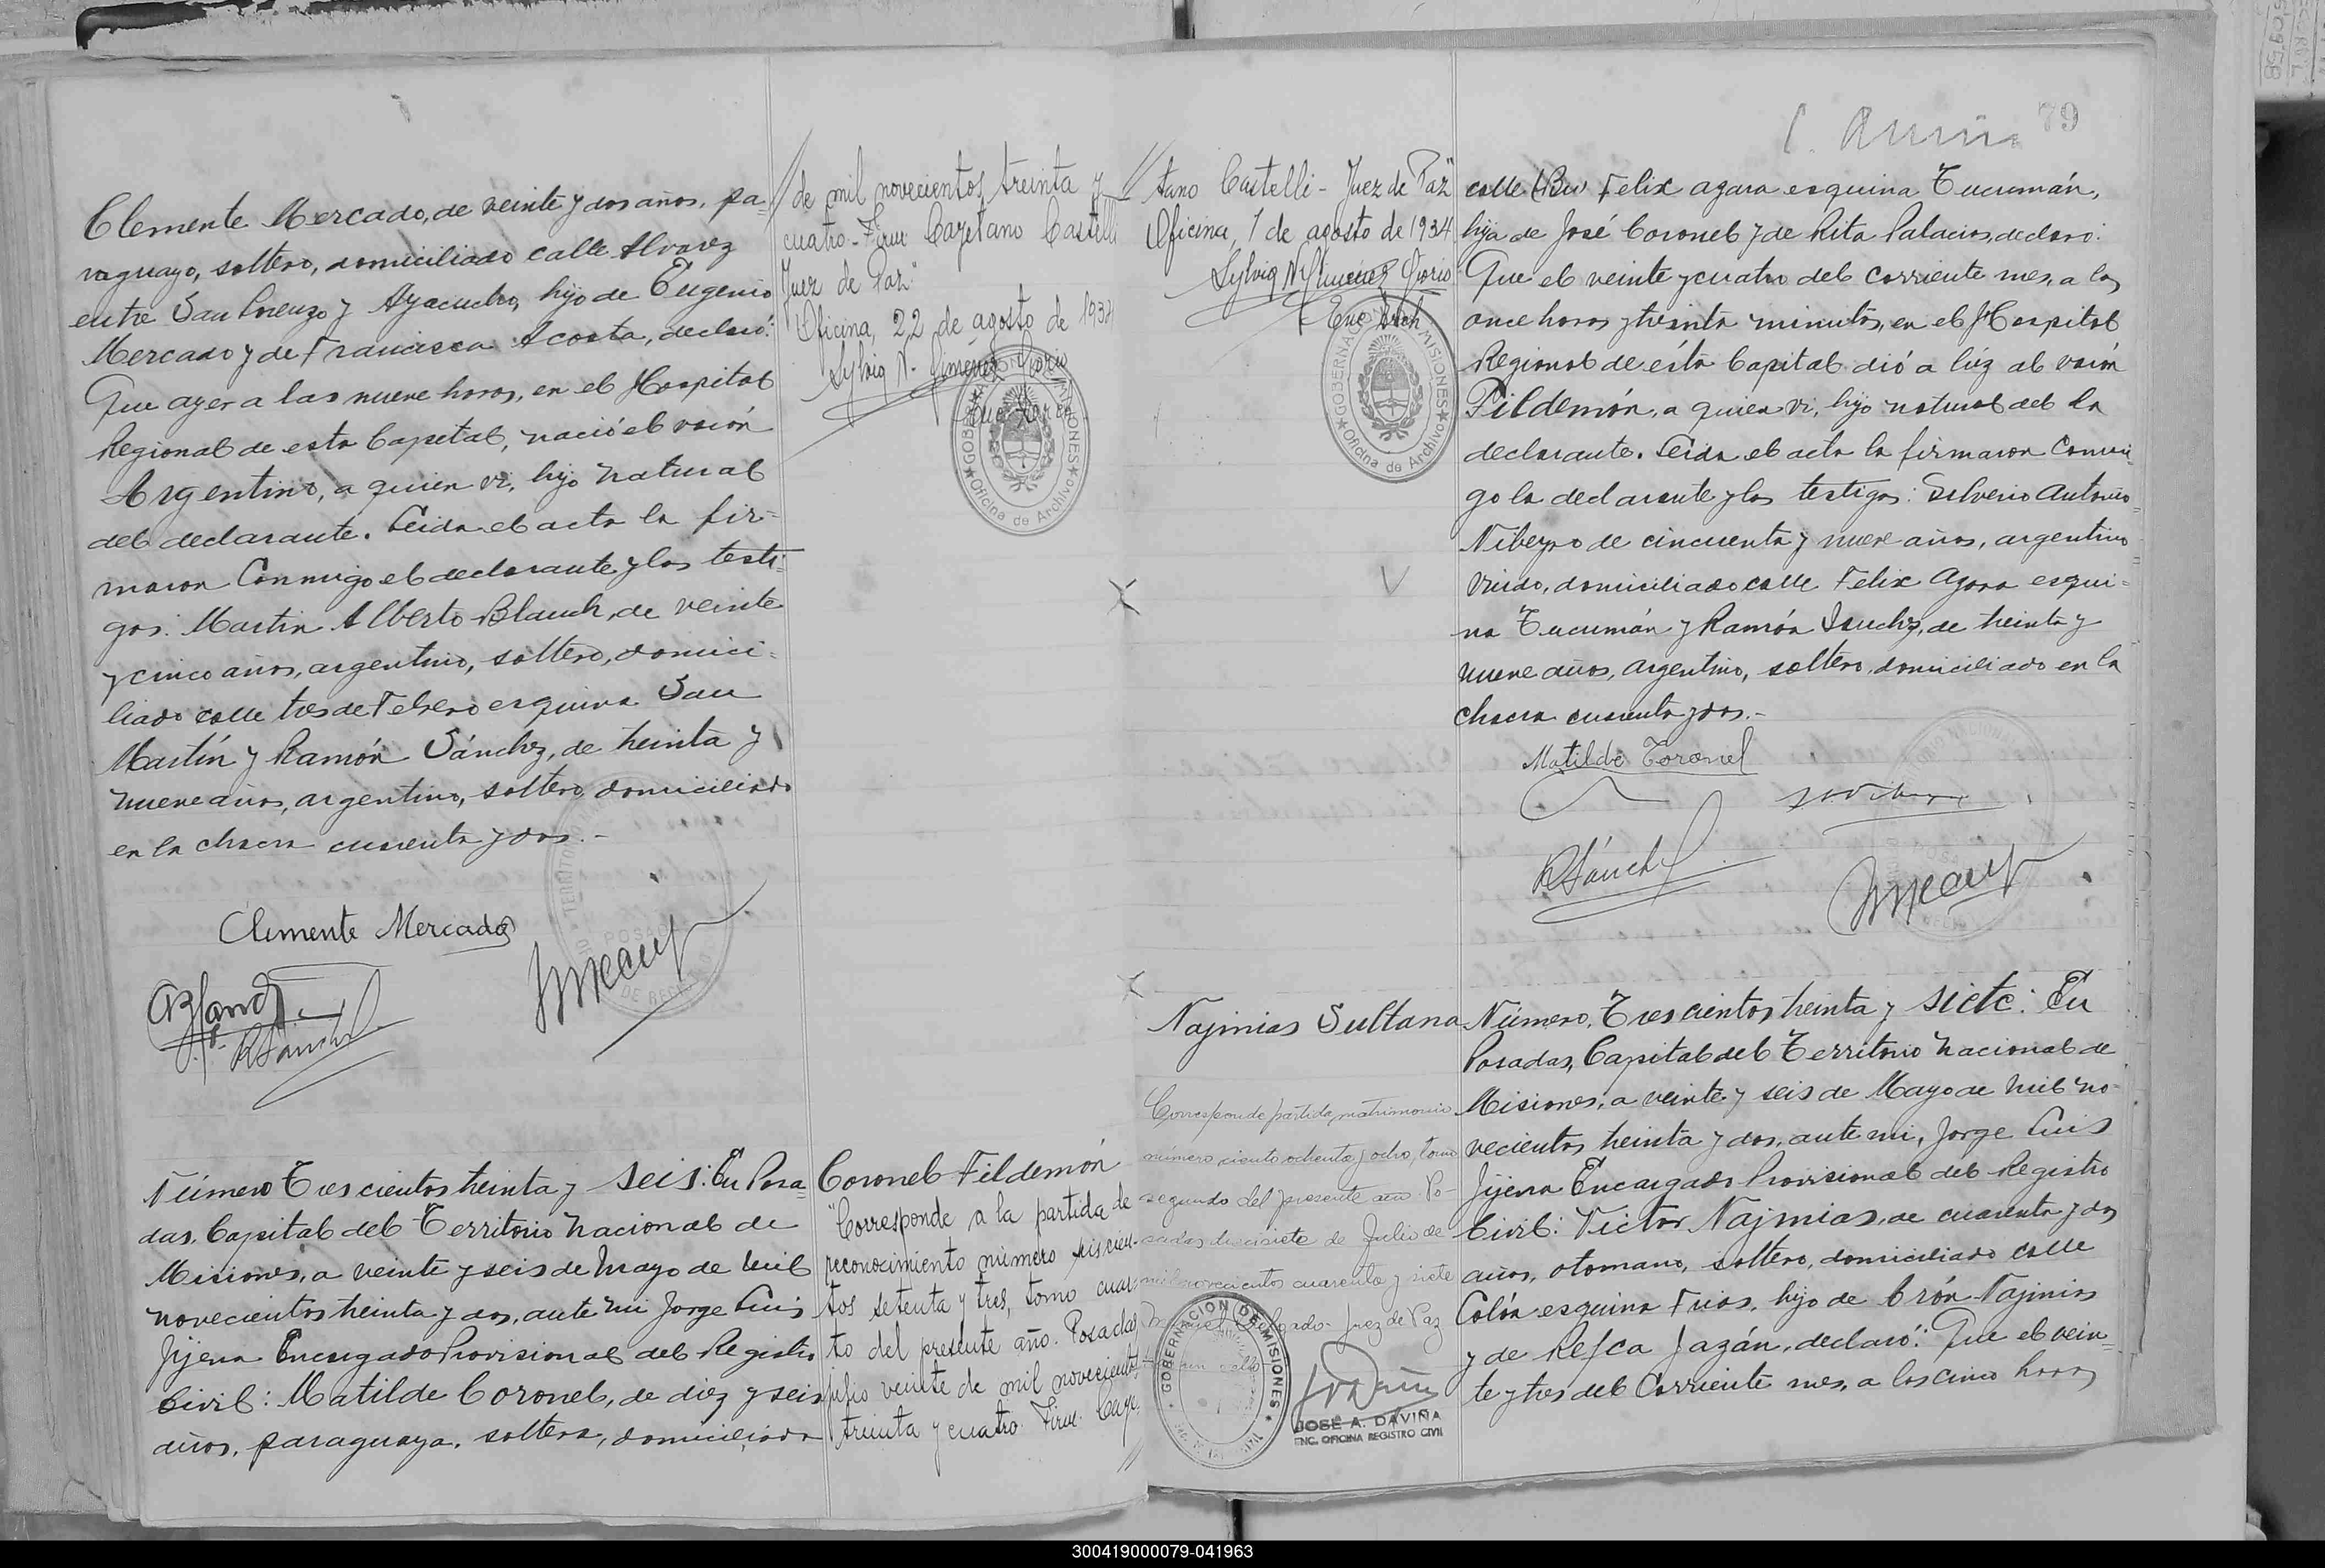 Clemente Mercado, de veinte y dos años, pa-
raguayo, soltero, domiciliado calle Alvarez
entre San Lorenzo y Ayacucho, hijo de Eugenio
Mercado y de Francisca Acosta, declaró:
Que ayer a las nueve horas, en el Hospital
Regional de esta Capital, nació el varón
Argentino, a quien vi, hijo natural
del declarante. Leida el acta la fir-
maron conmigo el declarante y los testi-
gos: Martin Alberto Blanch, de veinte
y cinco años, argentino, soltero, domici-
liado calle tres de Febrero esquina San
Martín y Ramón Sánchez, de treinta y
nueve años, argentino, soltero, domiciliado
en la chacra cuarenta y dos.-
Clemente Mercado
RSánchez
Número Trescientos treinta y seis: En Posa-
das, Capital del Territorio Nacional de
Misiones, a veinte y seis de Mayo de mil
novecientos treinta y dos, ante mi Jorge Luis
Jijena Encargado Provisional del Registro
Civil: Matilde Coronel, de diez y seis
años, paraguaya, soltera, domiciliada
// de mil novecientos treinta y
cuatro.- Firm Cayetano Castelli
Juez de Paz"
Oficina, 22 de agosto de 1934
Sylvia N. Gimenez
Enc. Arch
GOBERNACION DE MISIONES
Oficina de Archivo
Coronel Fildemón
"Corresponde a la partida de
reconocimiento número seiscien-
tos setenta y tres, tomo cuar-
to del presente año. Posadas
julio veinte de mil novecientos
treinta y cuatro. Firm. Caye-
//
// tano Castelli - Juez de Paz"
Oficina, 1 de agosto de 1934
Sylvia N. Gimenez
Enc Arch
GOBERNACION DE MISIONES
Oficina de Archivo
Najmias Sultana
Corresponde partida matrimonio
número ciento ochenta y ocho, tomo
segundo del presente año. Po-
sadas diecisiete de Julio de
mil novecientos cuarenta y siete
Juez de Paz
GOBERNACION DE MISIONES
JOSÉ A. DAVIÑA
ENC. OFICINA REGISTRO CIVIL
79
calle Felix Azara esquina Tucumán,
hija de José Coronel y de Rita Palacios, declaro:
Que el veinte y cuatro del corriente mes, a las
once horas y treinta minutos, en el Hospital
Regional de ésta Capital dió a lúz al varón
Fildemón, a quien vi, hijo natural del la
declarante. Leida el acta la firmaron conmi-
go la declarante y los testigos: Silverio Antonio
Nibeyro de cincuenta y nueve años, argentino
viudo, domiciliado calle Felix Azara esqui-
na Tucumán y Ramón Sanchez, de treinta y
nueve años, argentino, soltero, domiciliado en la
chacra cuarenta y dos.-
Matilde Coronel
RSánchez
Número, Trescientos treinta y siete: En
Posadas, Capital del Territorio Nacional de
Misiones, a veinte y seis de Mayo de mil no-
vecientos treinta y dos, ante mi, Jorge Luis
Jijena Encargado Provisional del Registro
Civil: Victor Najmias, de cuarenta y dos
años, otomano, soltero, domiciliado calle
Colón esquina Frias, hijo de Najmias
y de Jazán, declaró: Que el vein-
te y tres del Corriente mes, a las cinco horas
300419000079-041963